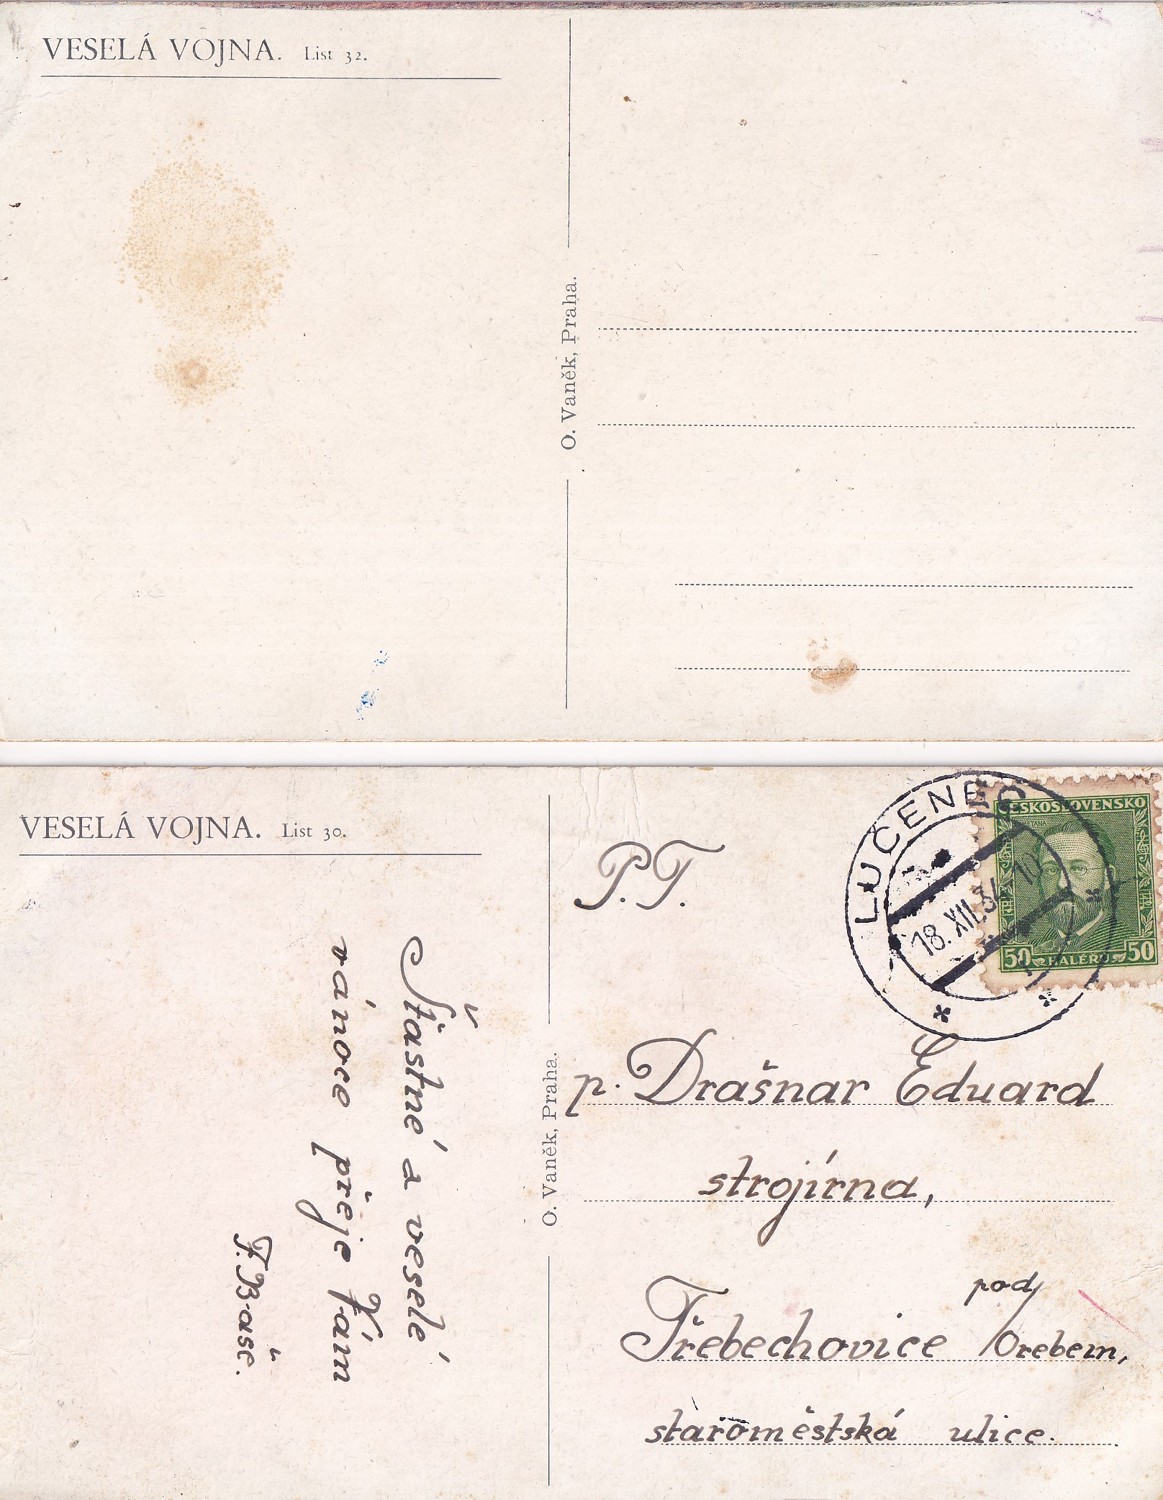 VESELÁ VOJNA. List 32.
O. Vaněk, Praha.
VESELÁ VOJNA. List 30.
Šťastné a veselé
vánoce přeje Vám
F. Bašč.
O. Vaněk, Praha.
LUČENEC
18. XII. 34 10
ČESKOSLOVENSKO
50 HALÉŘŮ 50
P.T.
p. Drašnar Eduard
strojírna,
Třebechovice pod Orebem,
staroměstská ulice.